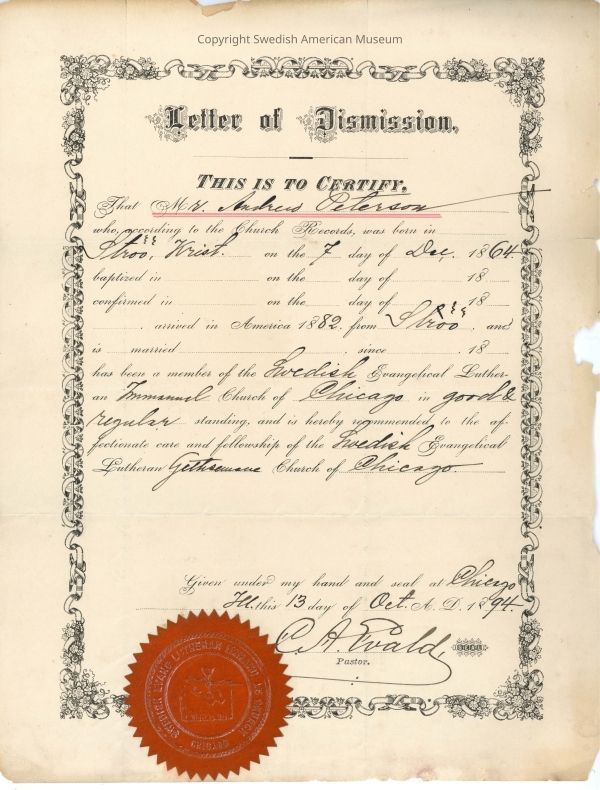 Copyright Swedish American Museum
Letter of Dismission,
THIS IS TO CERTIFY,
That Mr. Andrus Peterson
who, according to the Church Records, was born in
Ströö, Krist. on the 7 day of Dec. 1864.
baptized in on the day of 18
confirmed in on the day of 18
arrived in America 1882 from Ströö and
is married since 18
has been a member of the Swedish Evangelical Luther-
an Immanuel Church of Chicago in good &
regular standing, and is hereby recommended to the af-
fectionate care and fellowship of the Swedish Evangelical
Lutheran Gethsemane Church of Chicago.
Given under my hand and seal at Chicago
Ill. this 13 day of Oct. A. D. 1894.
C. A. Evald,
SEAL
Pastor.
SWEDISH EVANG. LUTHERAN IMMANUEL CHURCH
CHICAGO